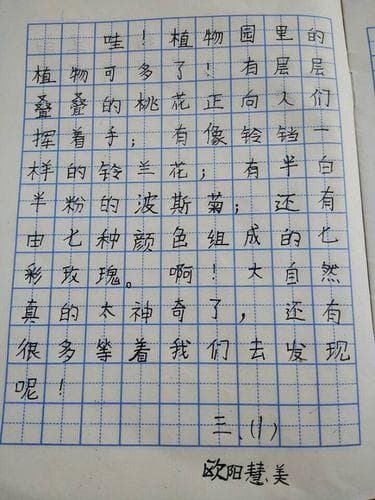 哇！植物园里的
植物可多了！有层层
叠叠的桃花正向人们
挥着手；有像铃铛一
样的铃兰花；有半白
半粉的波斯菊；还有
由七种颜色组成的七
彩玫瑰。啊！大自然
真的太神奇了，还有
很多等着我们去发现
呢！
三、(1)
欧阳慧美